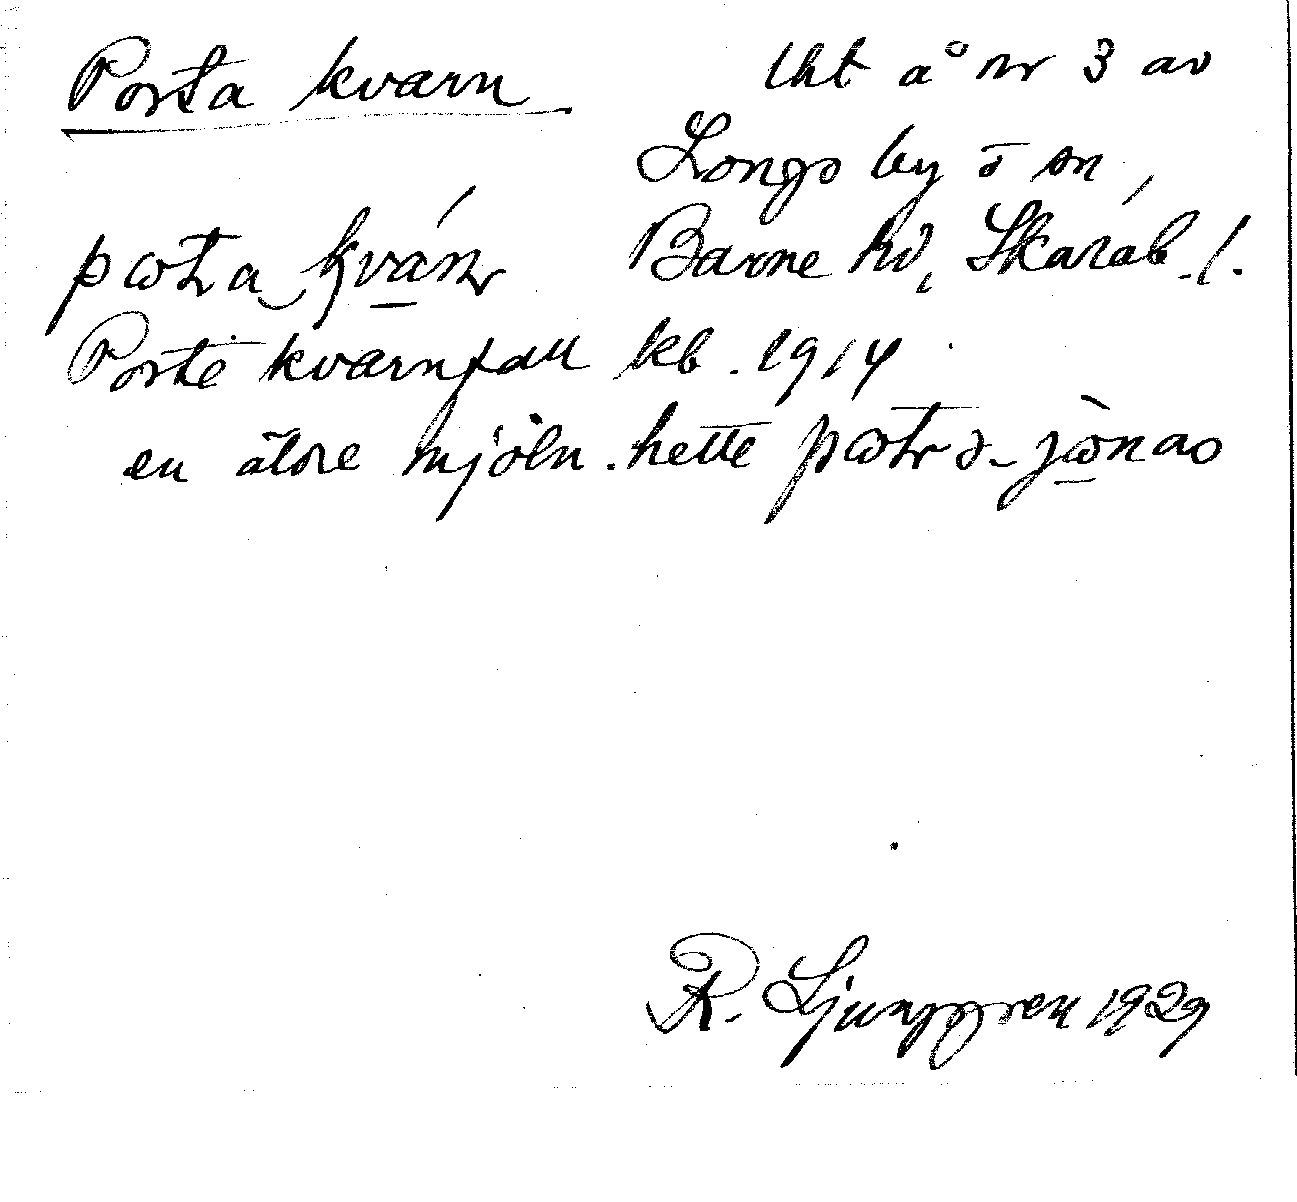 Porta kvarn
lht å nr 3 av
Longs by o sn,
Barne hd, Skarab. l.
Porte kvarnfall kb. 1914
en äldre mjöln. hette
R. Ljunggren 1929